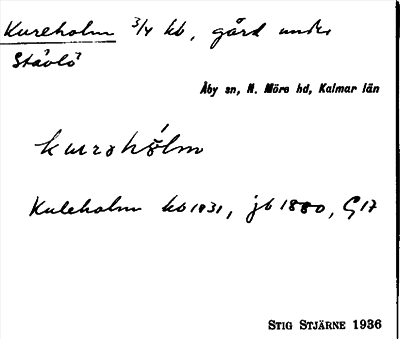 Kureholm 3/4 kb, gård under
Stävlö
Åby sn, N. Möre hd, Kalmar län
kurrəhólm
Kuleholm kb 1931, jb 1880, G17
Stig Stjärne 1936